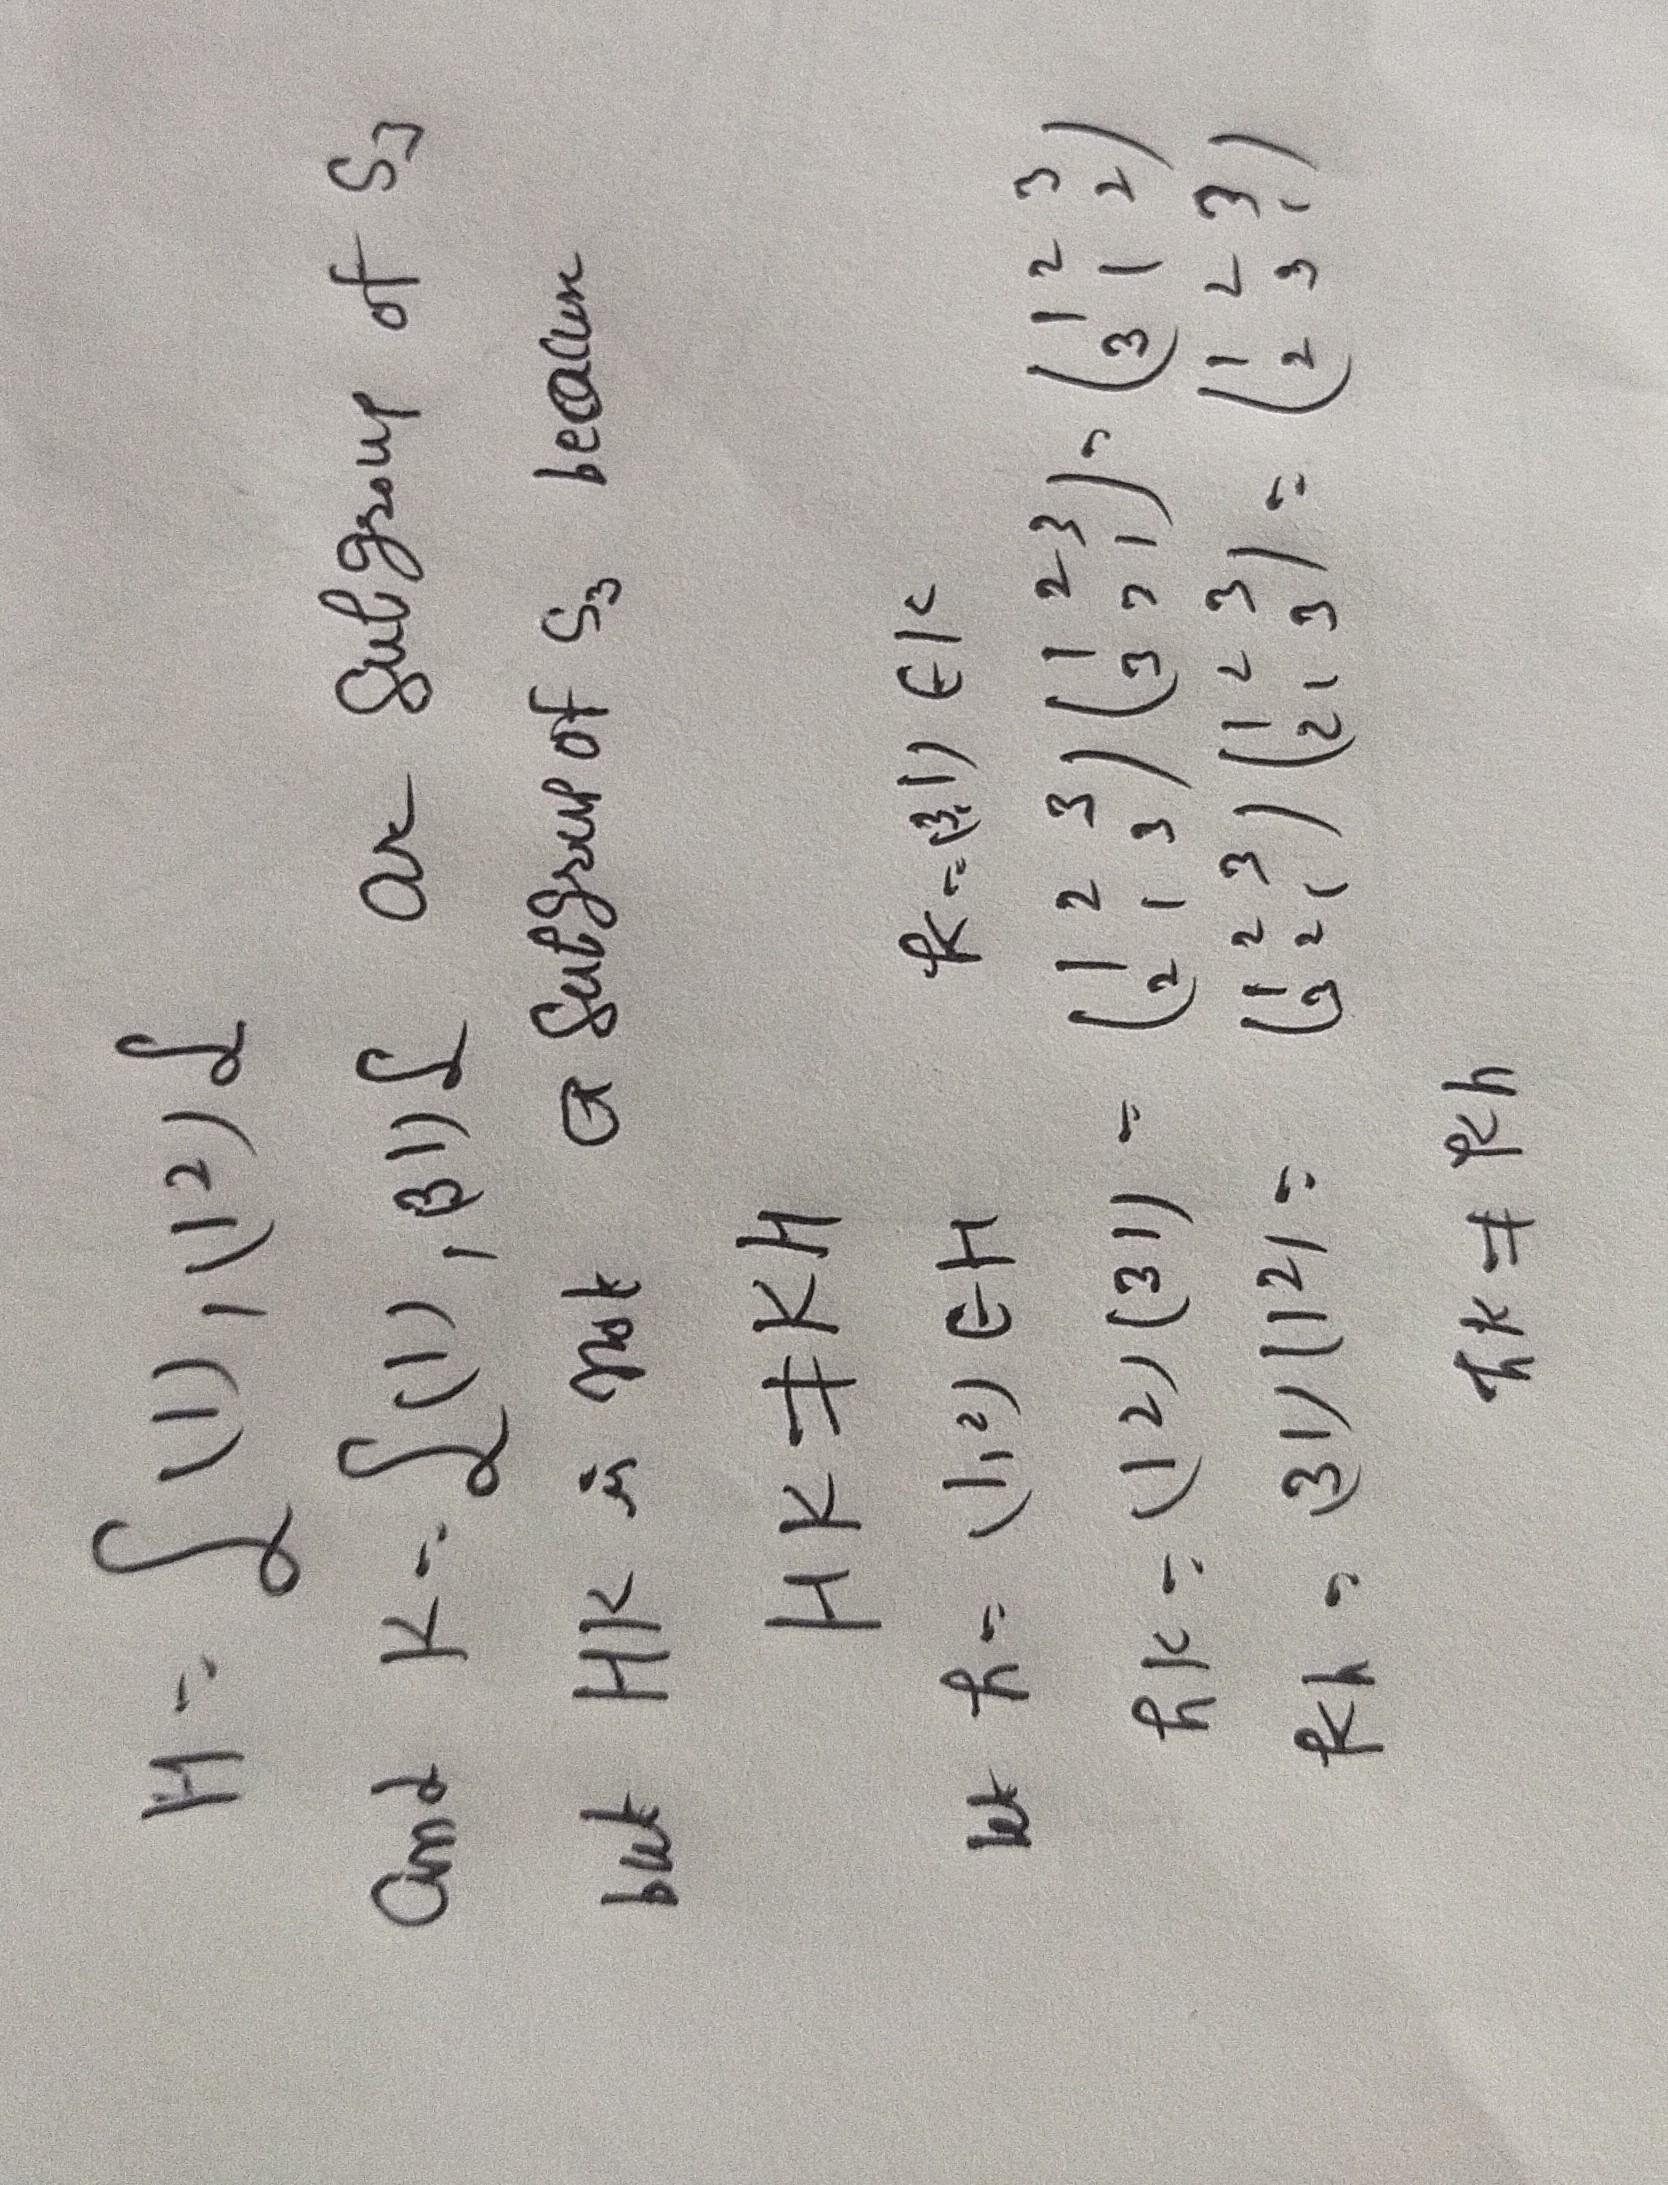 H = {(1), (1 2)}
and K = {(1), (3 1)} are subgroup of S3
but HK is not a subgroup of S3 because
HK ≠ KH
let h = (1, 2) ∈ H k = (3, 1) ∈ K
hk = (1 2) (3 1) = (1 2 3 / 2 1 3) (1 2 3 / 3 2 1) = (1 2 3 / 3 1 2)
kh = (3 1) (1 2) = (1 2 3 / 3 2 1) (1 2 3 / 2 1 3) = (1 2 3 / 2 3 1)
hk ≠ kh